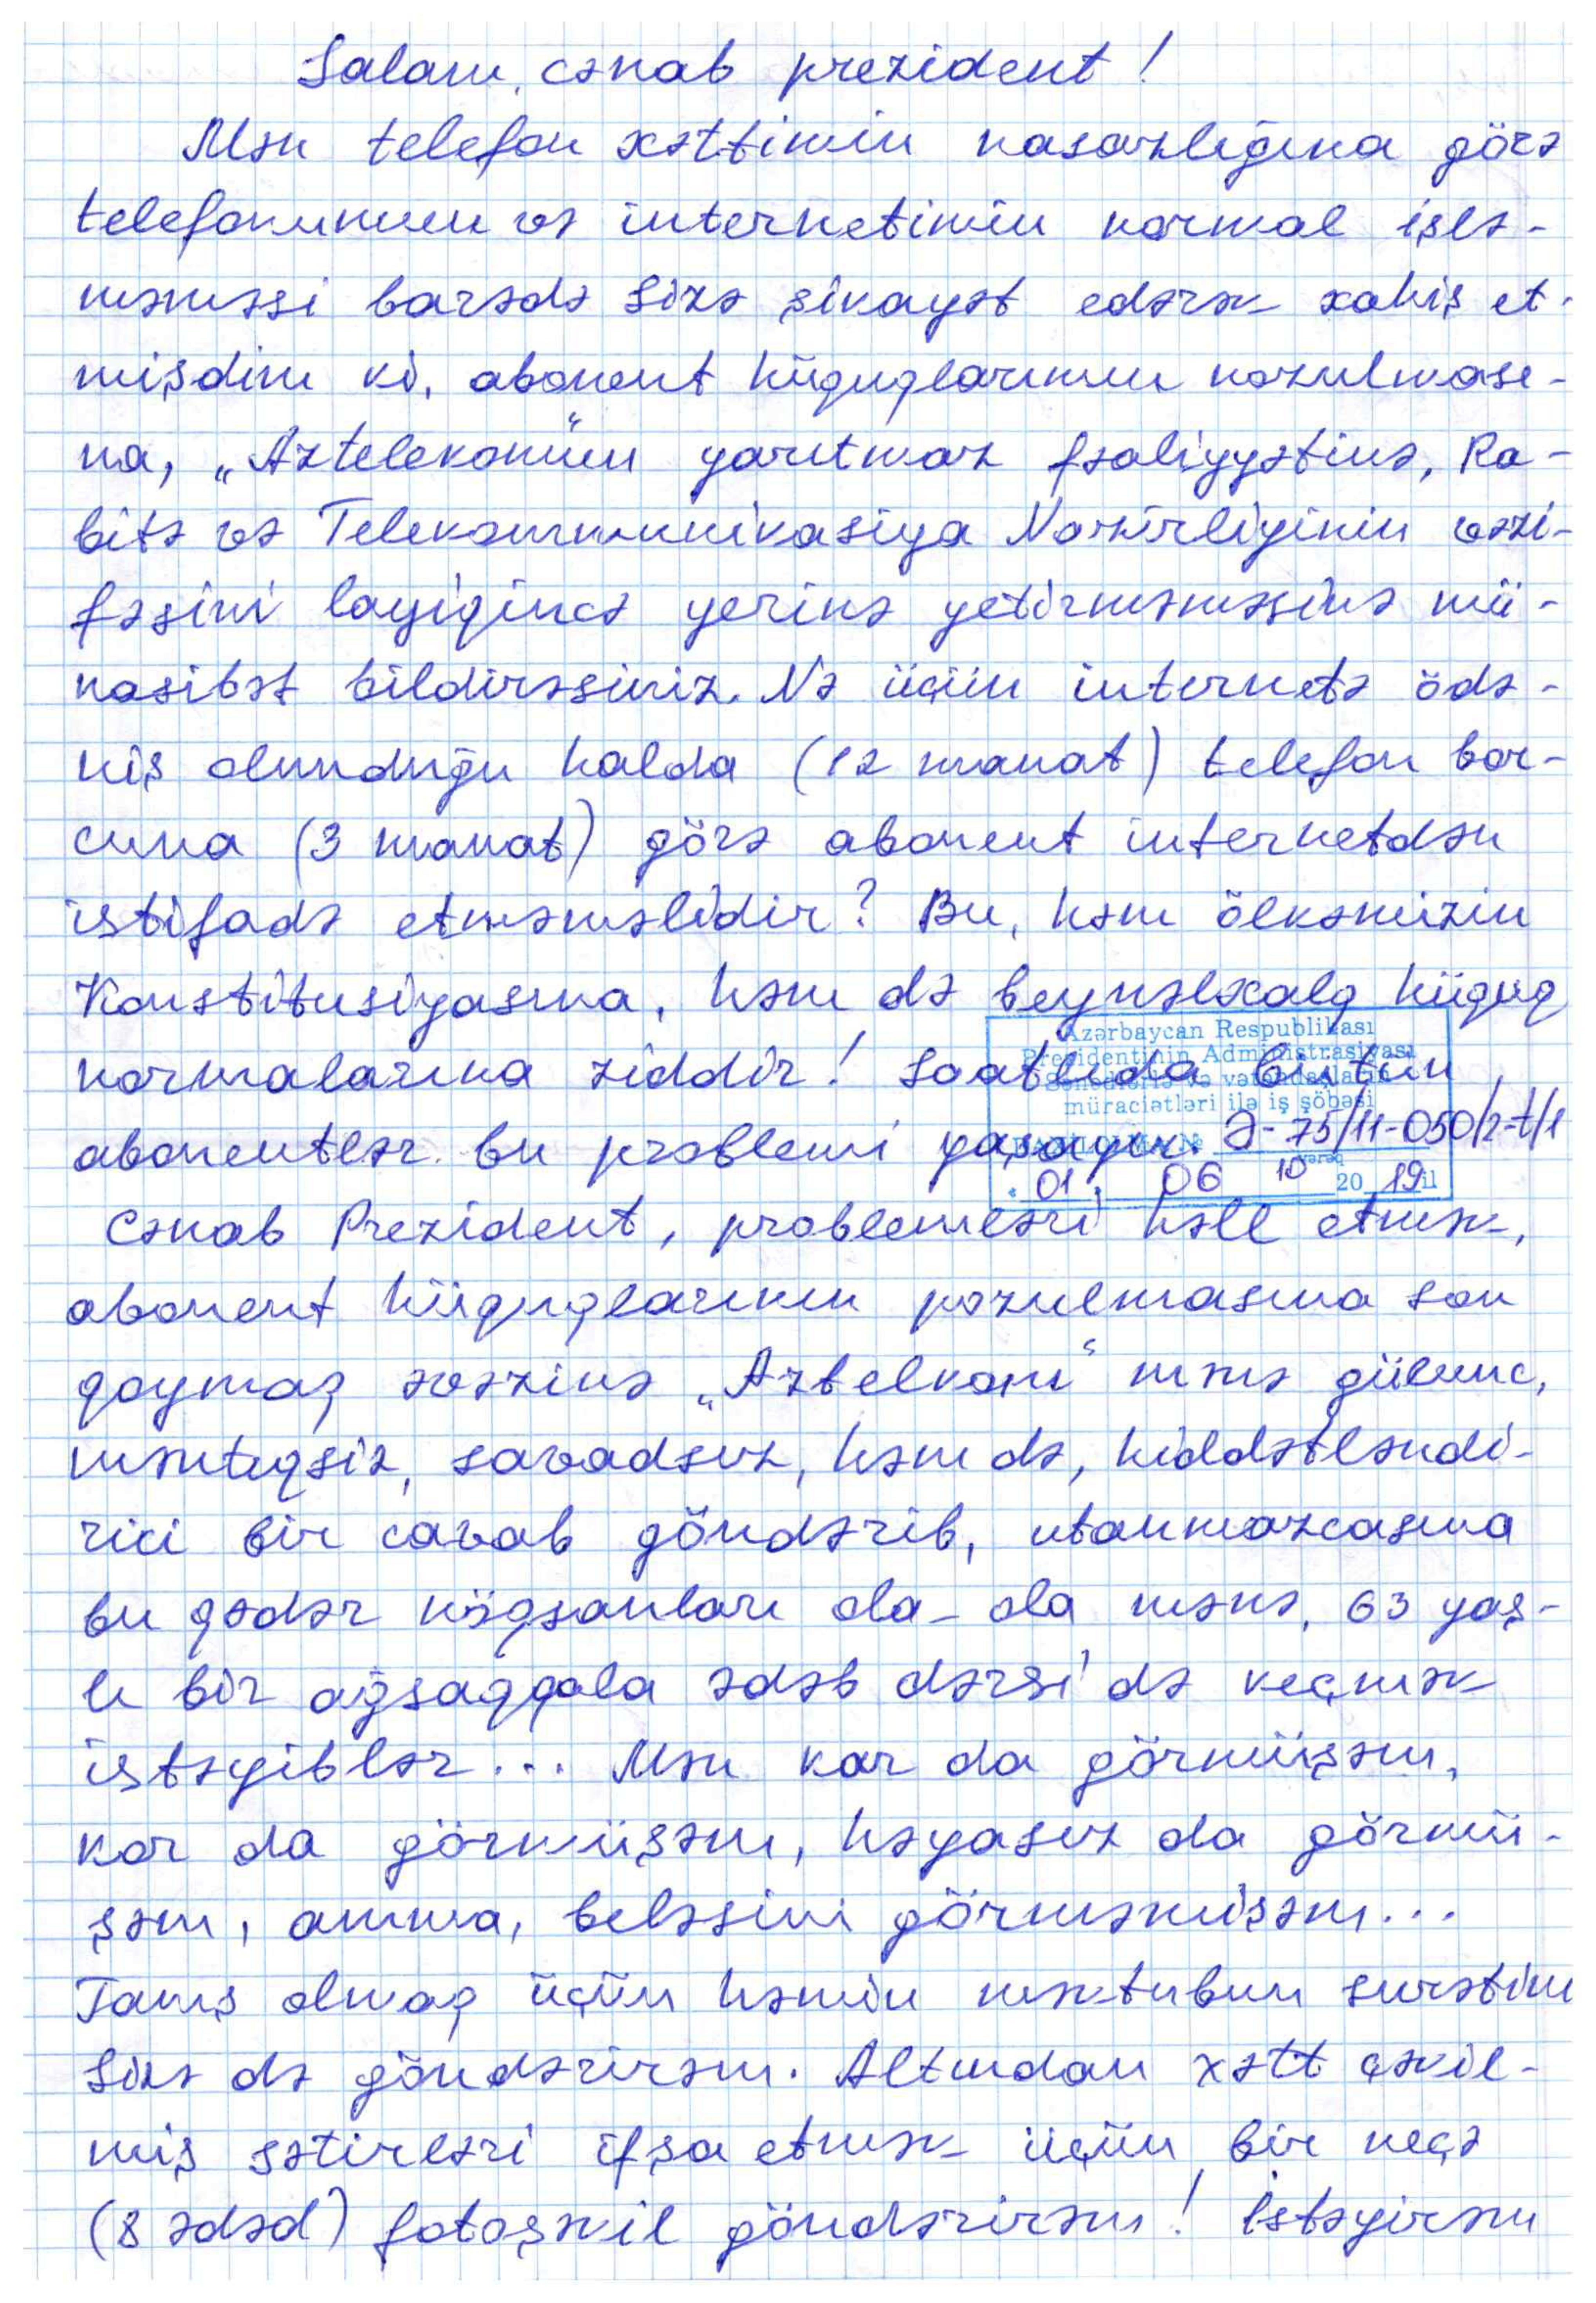 Salam, cənab prezident!
Mən telefon xəttimin nasazlığına görə
telefonumun və internetimin normal işlə-
məməsi barədə Sizə şikayət edərək xahiş et-
mişdim ki, abonent hüquqlarımın pozulması-
na, „Aztelekomun“ yarıtmaz fəaliyyətinə, Ra-
bitə və Telekommunikasiya Nazirliyinin vəzi-
fəsini layiqincə yerinə yetirməməsinə mü-
nasibət bildirəsiniz. Nə üçün internetə ödə-
niş olunduğu halda (12 manat) telefon bor-
cuna (3 manat) görə abonent internetdən
istifadə etməməlidir? Bu, həm ölkəmizin
Konstitusiyasına, həm də beynəlxalq hüquq
normalarına ziddir! Saatlıda bütün
abonentlər bu problemi yaşayır.
Azərbaycan Respublikası
Prezidentinin Administrasiyası
Sənədlərlə və vətəndaşların
müraciətləri ilə iş şöbəsi
№ Ə-75/11-050/2-t/1
vərəq
" 01 " 06 10 20 19 il
Cənab Prezident, problemləri həll etmək,
abonent hüquqlarının pozulmasına son
qoymaq əvəzinə „Aztelkom“ mənə gülünc,
məntiqsiz, savadsız, həm də, hiddətləndi-
rici bir cavab göndərib, utanmazcasına
bu qədər nöqsanları ola-ola mənə, 63 yaş-
lı bir ağsaqqala ədəb dərsi də keçmək
istəyiblər... Mən kar da görmüşəm,
kor da görmüşəm, həyasız da görmü-
şəm, amma, beləsini görməmişəm...
Tanış olmaq üçün həmin məktubun surətini
Sizə də göndərirəm. Altından xətt çəkil-
miş sətirləri ifşa etmək üçün bir neçə
(8 ədəd) fotoşəkil göndərirəm! İstəyirəm